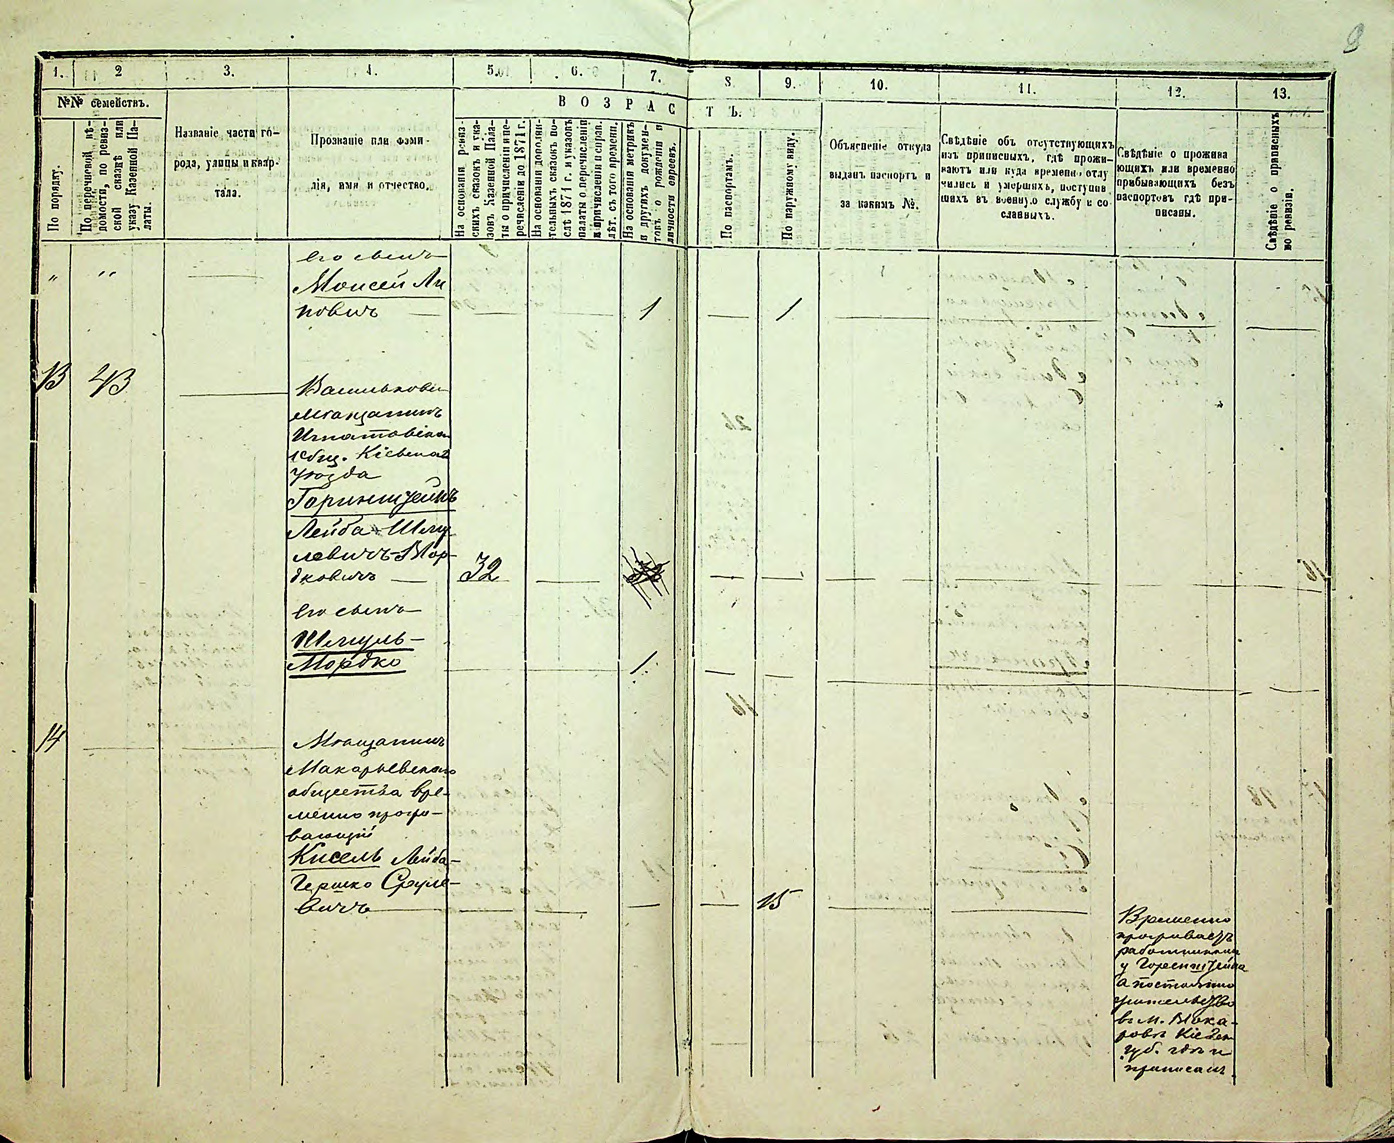 9
1. 2 3. 4. 5. 6. 7. 8 9. 10. 11. 12. 13.
№№ семействъ.
В О З Р А С Т Ъ.
По порядку.
По перечневой вѣ-
домости, по ревиз-
ской сказкѣ или
указу Казенной Па-
латы.
Названіе части го-
рода, улицы и квар-
тала.
Прозваніе или фами-
лія, имя и отчество.
На основаніи ревиз-
скихъ сказокъ и ука-
зовъ Казенной Пала-
ты о причисленіи и пе-
речисленіи до 1871 г.
На основаніи дополни-
тельныхъ сказокъ по-
слѣ 1871 г. и указовъ
палаты о перечисленіи
и причисленіи и справ.
лѣт. съ того времени.
На основаніи метрикъ
и другихъ докумен-
товъ о рожденіи и
личности евреевъ.
По паспортамъ.
По наружному виду.
Объясненіе откуда
выданъ паспортъ и
за какимъ №.
Свѣдѣніе объ отсутствующихъ
изъ приписныхъ, гдѣ прожи-
ваютъ или куда временно отлу
чились и умершихъ, поступив
шихъ въ военную службу и со
сланныхъ.
Свѣдѣніе о прожива
ющихъ или временно
прибывающихъ безъ
паспортовъ гдѣ при-
писаны.
Свѣдѣніе о приписныхъ
по ревизіи.
" " Его сынъ
Моисей Ли
повичъ — 1 — 1
13 43 Васильковск
мѣщанинъ
Игнатовіск
общ. Кіевска
уѣзда
Горинштейнъ
Лейба-Шму
левичъ-Мор-
дковичъ — 32
Его сынъ
Шмуль-
Мордко 1
14 Мѣщанинъ
Макарьевскаго
общества вре-
менно прожи-
вающій
Кисель Лейба-
Гершко Сруле-
вичъ 15
Временно
проживаетъ
работникомъ
у Горенштейна
а постоянно
жительство
въ м. Мака-
ровѣ Кіевск
губ. гдѣ и
приписанъ.